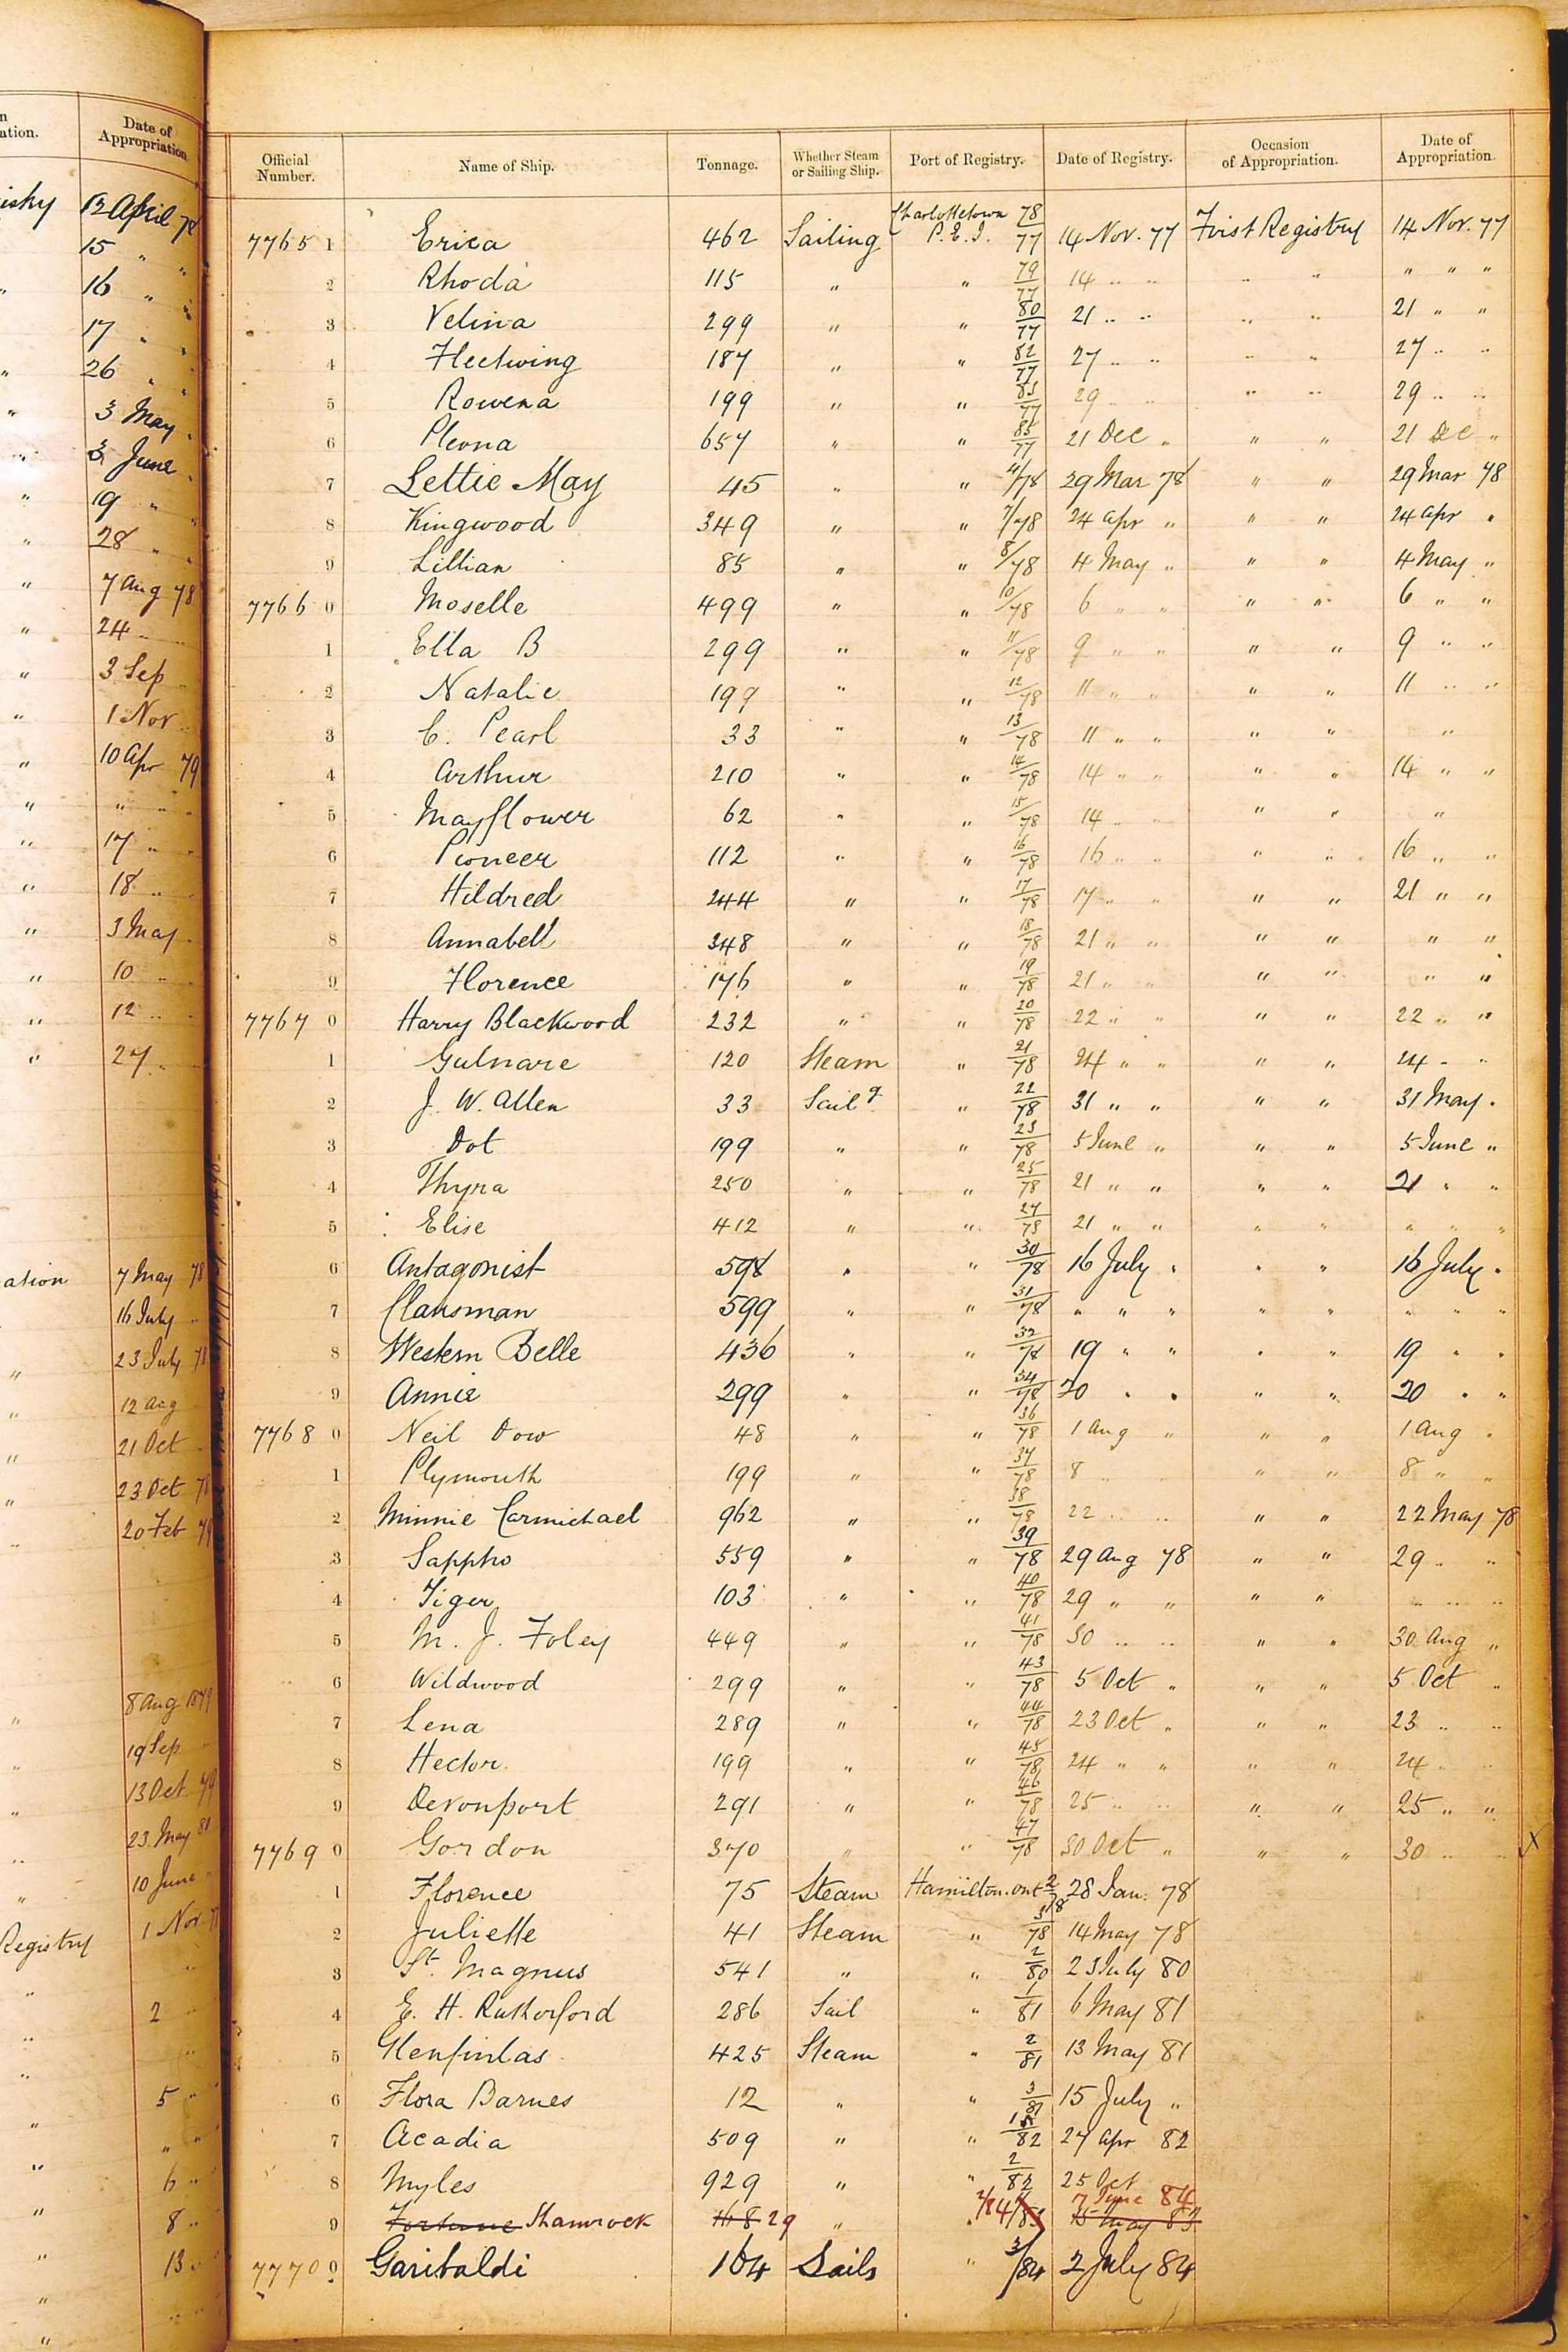 Date of Appropriation
12 April 78
15 " "
16 " "
17 " "
26 " "
3 May "
3 June "
19 " "
28 " "
7 Aug 78
24 " "
3 Sep "
1 Nov "
10 Apr 79
" " "
17 " "
18 " "
3 May "
10 " "
12 " "
27 " "
7 May 78
16 July "
23 July 78
12 Aug
21 Oct "
23 Oct 78
20 Feb 79
8 Aug 1879
19 Sep "
13 Oct 79
23 May 81
10 June "
Registry 1 Nov
2 "
5 "
" "
6 "
8 "
13 "
Official Number. Name of Ship. Tonnage. Whether Steam or Sailing Ship. Port of Registry. Date of Registry. Occasion of Appropriation. Date of Appropriation.
77651 Erica 462 Sailing Charlottetown P.E.I. 78/77 14 Nov. 77 First Registry 14 Nov. 77
2 Rhoda 115 " " 79/77 14 " " " " " " "
3 Velina 299 " " 80/77 21 " " " " 21 " "
4 Fleetwing 187 " " 82/77 27 " " " " 27 " "
5 Rowena 199 " " 77 29 " " " " 29 " "
6 Pleona 657 " " 85/77 21 Dec " " " 21 Dec "
7 Lettie May 45 " " 4/78 29 Mar 78 " " 29 Mar 78
8 Kingwood 349 " " 7/78 24 Apr " " " 24 Apr "
9 Lillian 85 " " 8/78 4 May " " " 4 May "
77660 Moselle 499 " " 10/78 6 " " " " 6 " "
1 Ella B 299 " " 11/78 9 " " " " 9 " "
2 Natalie 199 " " 12/78 11 " " " " 11 " "
3 C. Pearl 33 " " 13/78 11 " " " " "
4 Arthur 210 " " 14/78 14 " " " " 14 " "
5 Mayflower 62 " " 15/78 14 " " " " "
6 Pioneer 112 " " 16/78 16 " " " " 16 " "
7 Hildred 244 " " 17/78 17 " " " " 21 " "
8 Annabell 348 " " 18/78 21 " " " " " "
9 Florence 176 " " 19/78 21 " " " " " "
77670 Harry Blackwood 232 " " 20/78 22 " " " " 22 " "
1 Gulnare 120 Steam " 21/78 24 " " " " 24 " "
2 J. W. Allen 33 Sailg " 22/78 31 " " " " 31 May "
3 Dot 199 " " 23/78 5 June " " " 5 June "
4 Thyra 250 " " 25/78 21 " " " " 21 " "
5 Elise 412 " " 27/78 21 " " " " " " "
6 Antagonist 598 " " 30/78 16 July " " " 16 July "
7 Clansman 599 " " 31/78 " " " " " " " "
8 Western Belle 436 " " 32/78 19 " " " " 19 " "
9 Annie 299 " " 34/78 20 " " " " 20 " "
77680 Neil Dow 48 " " 36/78 1 Aug " " " 1 Aug "
1 Plymouth 199 " " 37/78 8 " " " " 8 " "
2 Minnie Carmichael 962 " " 38/78 22 " " " " 22 May 78
3 Sappho 559 " " 39/78 29 Aug 78 " " 29 " "
4 Tiger 103 " " 40/78 29 " " " " " " "
5 M. J. Foley 449 " " 41/78 30 " " " " 30 Aug "
6 Wildwood 299 " " 43/78 5 Oct " " " 5 Oct "
7 Lena 289 " " 44/78 23 Oct " " " 23 " "
8 Hector 199 " " 45/78 24 " " " " 24 " "
9 Devonport 291 " " 46/78 25 " " " " 25 " "
77690 Gordon 370 " " 47/78 30 Oct " " " 30 " " X
1 Florence 75 Steam Hamilton. ont 2/78 28 Jan. 78
2 Juliette 41 Steam " 3/78 14 May 78
3 St. Magnus 541 " " 2/80 23 July 80
4 E. H. Rutherford 286 Sail " 1/81 6 May 81
5 Glenfinlas 425 Steam " 2/81 13 May 81
6 Flora Barnes 12 " " 3/81 15 July "
7 Acadia 509 " " 1/82 27 Apr 82
8 Myles 929 " " 2/82 25 Oct
7 June 84
9 Fortune Shamrock 168 29 " " 2/84 /83 15 May 83
77700 Garibaldi 164 Sails " 3/84 2 July 84